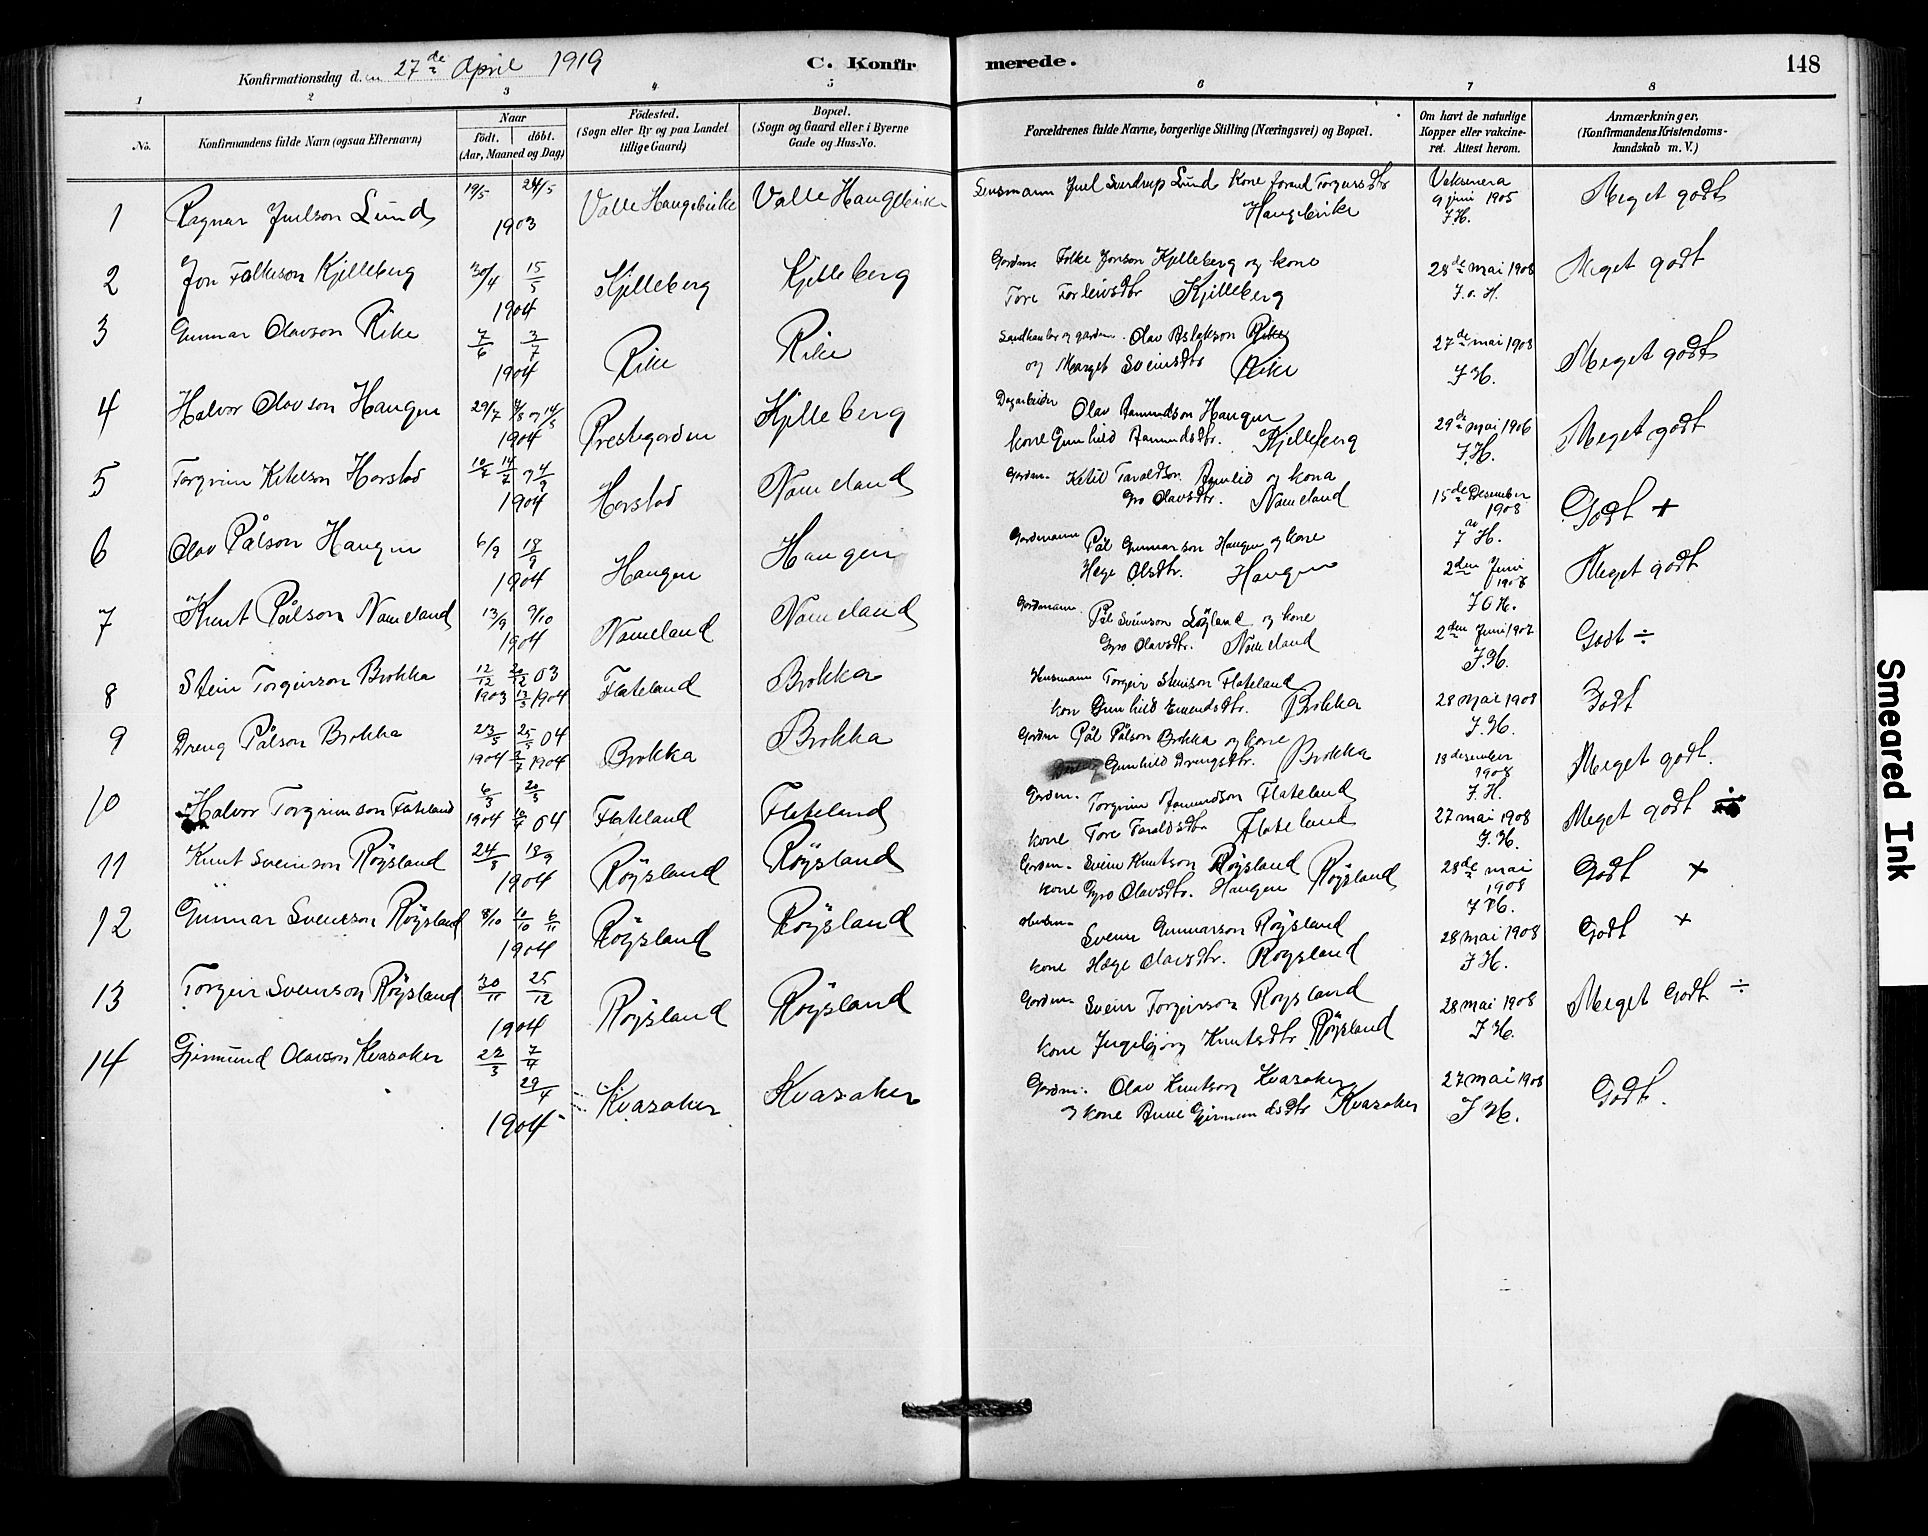 Konfirmationsdag d. 27de April 1919 C. Konfirmerede. 148
1 2 3 4 5 6 7 8
No. Konfirmandens fulde Navn (ogsaa Efternavn) Naar födt. döbt. (Aar, Maaned og Dag) Födested. (Sogn eller By og paa Landet tillige Gaard) Bopæl. (Sogn og Gaard eller i Byerne Gade og Hus-No. Forældrenes fulde Navne, borgerlige Stilling (Næringsvei) og Bopæl. Om havt de naturlige Kopper eller vakcineret. Attest herom. Anmærkninger, (Konfirmandens Kristendomskundskab m. V.)
1 Ragnar Juelson Lund 19/5 24/5 1903 Valle Haugebirke Valle Haugebirke Lensmann Juel Sverdrup Lund Kone Torgursdtr Haugebirke Vaksinera 9 juni 1905 J.H. Meget godt
2 Jon Folkeson Kjelleberg 30/4 15/5 1904 Kjelleberg Kjelleberg Gardm. Folke Jonson Kjelleberg og kone Tore Torleivsdtr Kjelleberg 28de mai 1908 J.o.H. Meget godt
3 Gunnar Olavson Rike 7/6 3/7 1904 Rike Rike Landhandler og gardm. Olav Aslakson Rike og Marget Sveinsdtr Rike 27de mai 1908 J H. Meget godt
4 Halvor Olavson Haugen 29/7 14/8 1904 Prestegarden Kjelleberg Dagarbeider Olav Aamundson Haugen kone Gunhild Aamundsdtr. Kjelleberg 29de mai 1906 J.H. Meget godt
5 Torgrim Ketelson Horstad 4/9 1904 Horstad Nomeland Gardm. Ketil Taraldson og kona Gro Olavsdtr. Nomeland 15de Desember 1908 J H. Godt +
6 Olav Pålson Haugen 6/9 18/9 1904 Haugen Haugen Gardmann Pål Gunnarson Haugen og kone Hæge Olsdtr. Haugen 2den Juni 1908 J O H. Meget godt
7 Knut Pålson Nomeland 13/9 9/10 1904 Nomeland Nomeland Gardmann Pål Sveinson Løgland og kone Gyro Olavsdtr. Nomeland 2den Juni 1907 J.H. Godt ÷
8 Stein Torgeirson Brokka 12/12 1903 20/12 03 13/3 1904 Flateland Brokka Husmann Torgeir Steinson Flateland kon Gunhild Emundsdtr. Brokka 28 mai 1908 J.H. Godt
9 Dreng Pålson Brokka 23/5 1904 25/5 04 3/7 1904 Brokka Brokka Gardm Pål Pålson Brokka og kone Gunhild Drengsdtr. Brokka 18 desember 1908 J.H. Meget godt.
10 Halvor Torgrimson Flateland 6/3 1904 20/3 04 Flateland Flateland Gardm. Torgrim Aamundson Flateland kone Tore Taraldsdtr Flateland 27 mai 1908 J.H. Meget godt ÷
11 Knut Sveinson Röysland 24/8 18/9 1904 Röysland Röysland Gardm. Svein Knutson Röysland kone Gyro Olavsdtr. Haugen Röysland 28de mai 1908 J H. Godt +
12 Gunnar Sveinson Röysland 8/10 10/10 6/11 1904 Röysland Röysland Svein Gunnarson Röysland kone Hæge Olavsdtr. Röysland 28 mai 1908 J H. Godt +
13 Torgeir Sveinson Röysland 30/11 25/12 1904 Röysland Röysland Gardm. Svein Torgeirson Röysland kone Ingebjørg Knutsdtr Röysland 28 mai 1908 J H. Meget Godt ÷
14 Gjermund Olavson Kvasaker 22/3 7/4 29/4 1904 Kvasaker Kvasaker Gardm. Olav Knutson Kvasaker og kone Anne Gjermundsdtr Kvasaker 27 mai 1908 J H. Godt.
Smeared Ink